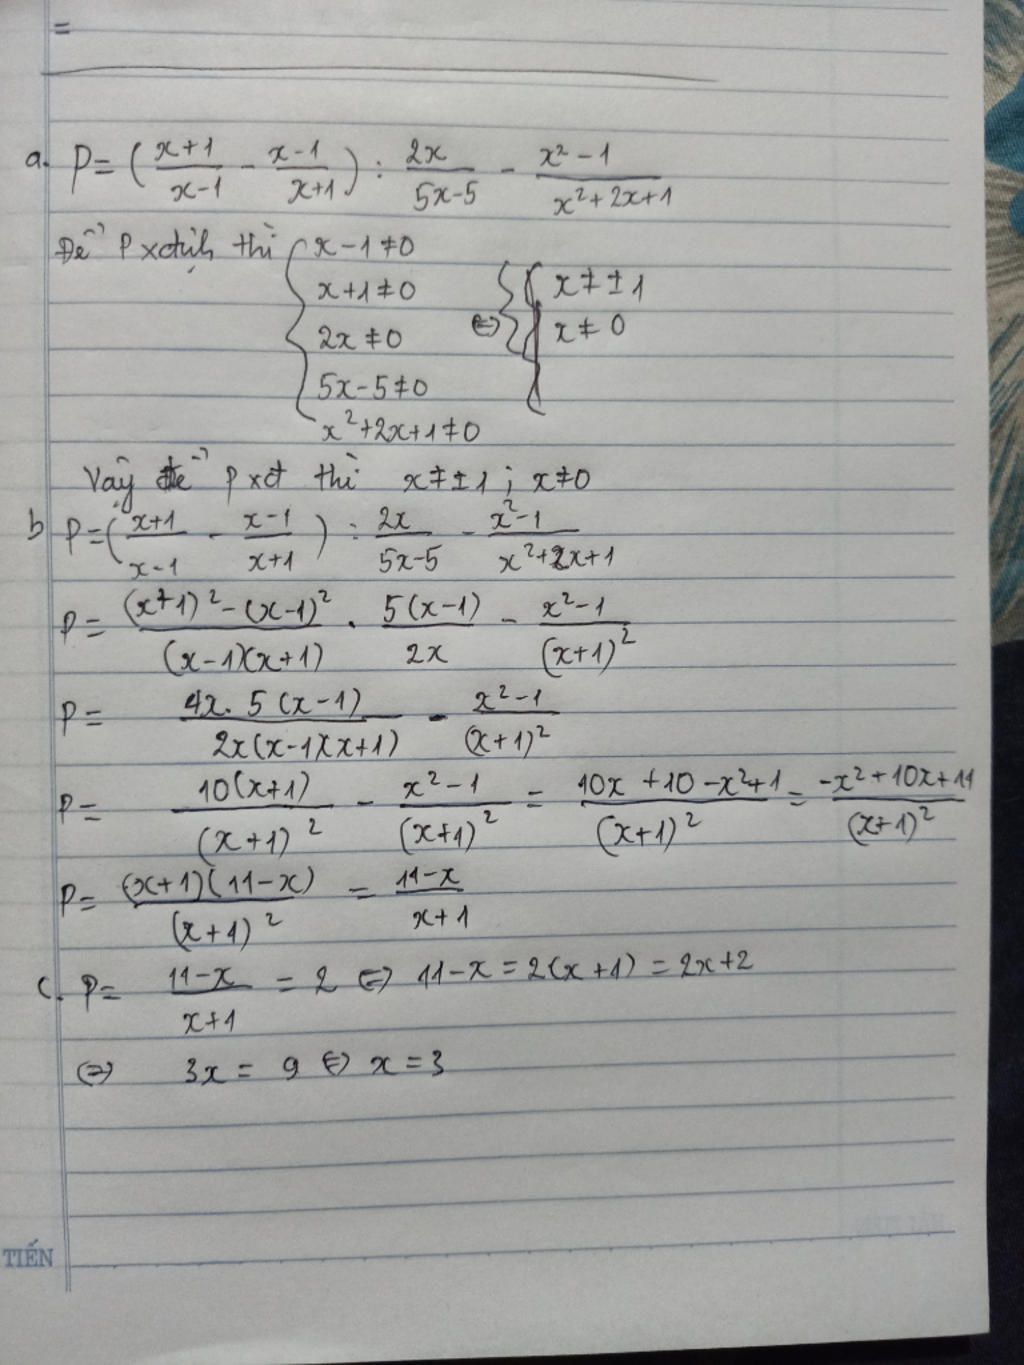 =
a. P = ( (x+1)/(x-1) - (x-1)/(x+1) ) : 2x/(5x-5) - (x²-1)/(x²+2x+1)
Để P xđịnh thì { x-1≠0
x+1≠0
2x≠0
5x-5≠0
x²+2x+1≠0
⇔ { x≠±1
x≠0
Vậy để P xđ thì x≠±1; x≠0
b P = ( (x+1)/(x-1) - (x-1)/(x+1) ) : 2x/(5x-5) - (x²-1)/(x²+2x+1)
P = ((x+1)²-(x-1)²)/((x-1)(x+1)) . 5(x-1)/2x - (x²-1)/(x+1)²
P = 4x.5(x-1)/(2x(x-1)(x+1)) - (x²-1)/(x+1)²
P = 10(x+1)/(x+1)² - (x²-1)/(x+1)² = (10x+10-x²+1)/(x+1)² = (-x²+10x+11)/(x+1)²
P = (x+1)(11-x)/(x+1)² = (11-x)/(x+1)
c. P = (11-x)/(x+1) = 2 ⇔ 11-x = 2(x+1) = 2x+2
⇔ 3x = 9 ⇔ x = 3
TIẾN